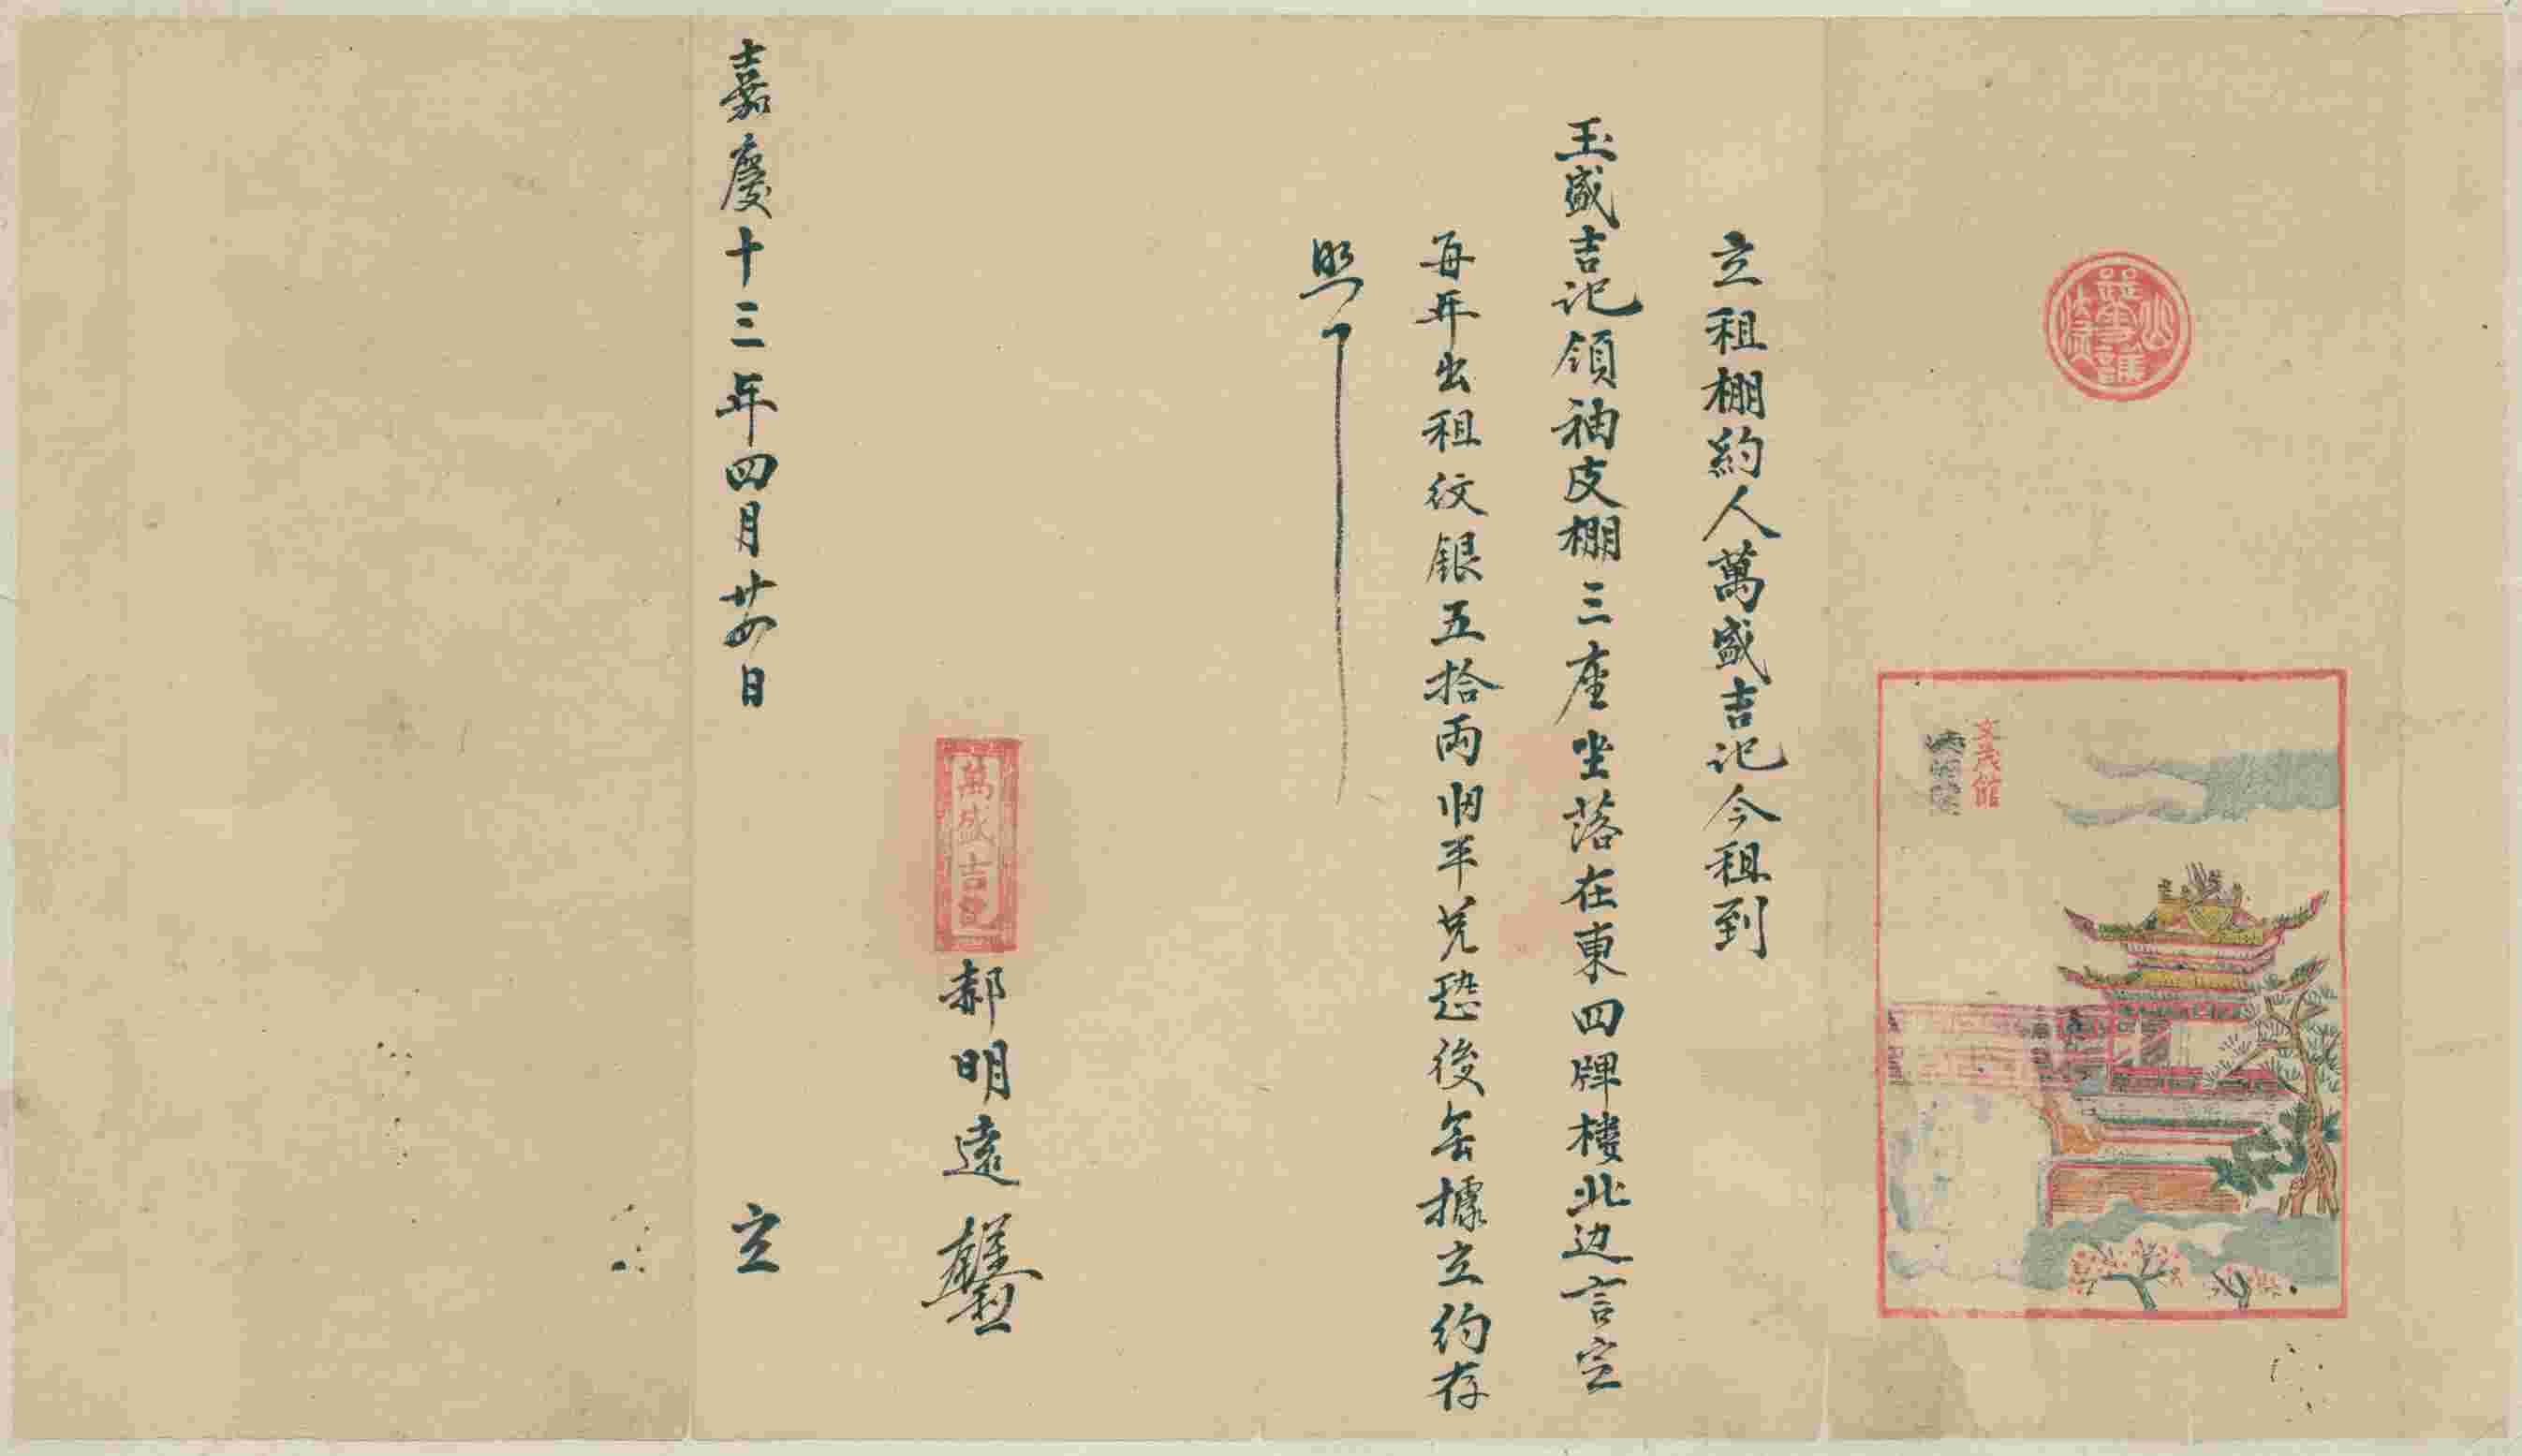 文茂館
立租棚約人萬盛吉记今租到
玉盛吉记領袖皮棚三座坐落在東四牌樓北边言定
每年出租纹銀五拾両旧平兑恐後無據立约存
照
萬盛吉記
郝明遠
嘉慶十三年四月廿四日 立